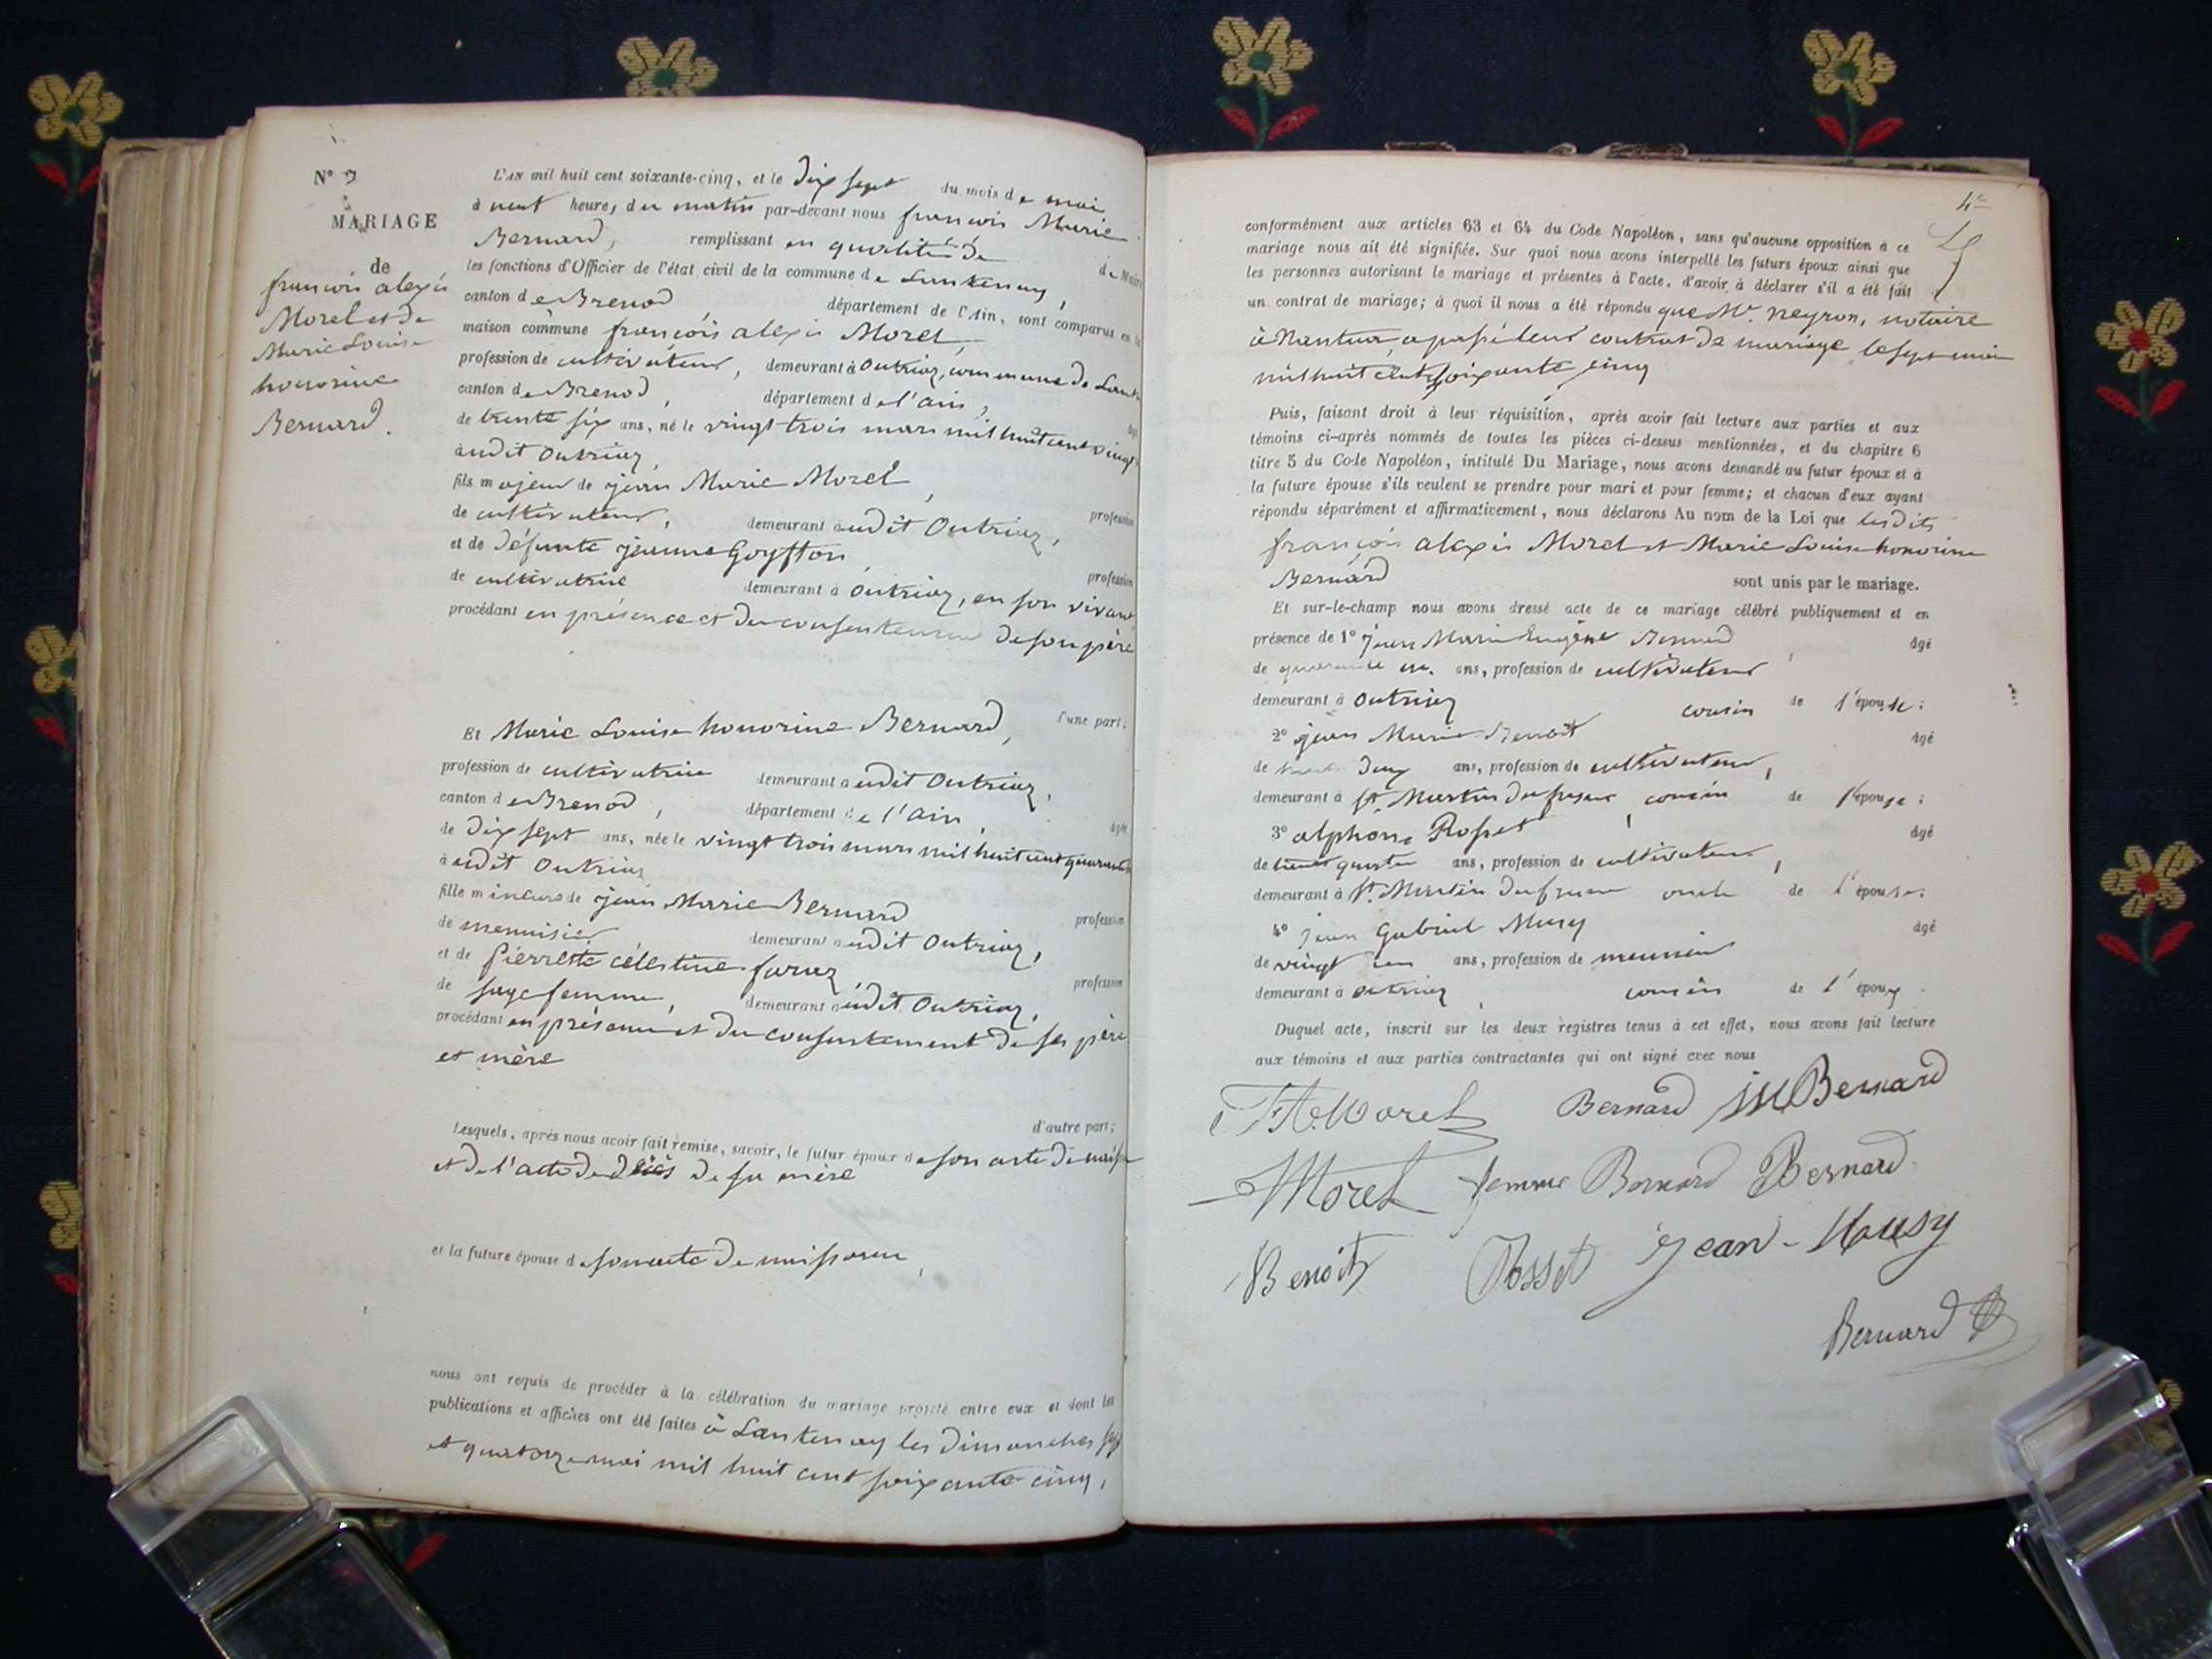 N° 3
MARIAGE
de
françois alexis
Morel et de
Marie Louise
honorine
Bernard.
L'AN mil huit cent soixante-cinq, et le dix sept du mois de mai
à neuf heures du matin par-devant nous françois Marie
Bernard, remplissant en qualité de de Maire
les fonctions d'Officier de l'état civil de la commune de Lantenay,
canton de Brenod département de l'Ain, sont comparus en la
maison commune françois alexis Morel,
profession de cultivateur, demeurant à Outriaz, commune de
canton de Brenod, département de l'ain, âgé
de trente six ans, né le vingt trois mars mil huit cent vingt
àudit Outriaz,
fils majeur de jean Marie Morel, profession
de cultivateur, demeurant audit Outriaz,
et de défunte jeanne Goyffon, profession
de cultivatrice demeurant à Outriaz, en son vivant
procédant en présence et du consentement de son père
d'une part;
Et Marie Louise honorine Bernard,
profession de cultivatrice demeurant audit Outriaz,
canton de Brenod, département de l'ain, âgée
de dix sept ans, née le vingt trois mars mil huit cent quarante
àudit Outriaz
fille mineure de jean Marie Bernard profession
de menuisier demeurant audit Outriaz,
et de Pierrette célestine, profession
de sage femme, demeurant audit Outriaz,
procédant en présence et du consentement de ses père
et mère
d'autre part;
Lesquels, après nous avoir fait remise, savoir, le futur époux de son acte de
et de l'acte de décès de sa mère
et la future épouse de son acte de naissance,
nous ont requis de procéder à la célébration du mariage projeté entre eux et dont les
publications et affiches ont été faites à Lantenay les dimanches sept
et quatorze mai mil huit cent soixante cinq,
4e
conformément aux articles 63 et 64 du Code Napoléon, sans qu'aucune opposition à ce
mariage nous ait été signifiée. Sur quoi nous avons interpellé les futurs époux ainsi que
les personnes autorisant le mariage et présentes à l'acte, d'avoir à déclarer s'il a été fait
un contrat de mariage; à quoi il nous a été répondu que Mr. neyron, notaire
à Nantua, a passé leur contrat de mariage le sept mai
mil huit cent soixante cinq
Puis, faisant droit à leur réquisition, après avoir fait lecture aux parties et aux
témoins ci-après nommés de toutes les pièces ci-dessus mentionnées, et du chapitre 6
titre 5 du Code Napoléon, intitulé Du Mariage, nous avons demandé au futur époux et à
la future épouse s'ils veulent se prendre pour mari et pour femme; et chacun d'eux ayant
répondu séparément et affirmativement, nous déclarons Au nom de la Loi que lesdits
françois alexis Morel et Marie Louise honorine
Bernard sont unis par le mariage.
Et sur-le-champ nous avons dressé acte de ce mariage célébré publiquement et en
présence de 1° jean Marie Eugène Bernard, âgé
de quarante un ans, profession de cultivateur
demeurant à Outriaz cousin de l'épouse;
2° jean Marie Benoit âgé
de deux ans, profession de cultivateur,
demeurant à St. Martin du fresne, cousin de l'épouse;
3° alphonse Rosset âgé
de quatre ans, profession de cultivateur,
demeurant à St. Martin du fresne oncle de l'épouse;
4° jean Gabriel Musy âgé
de vingt un ans, profession de meunier
demeurant à Outriaz, cousin de l'époux.
Duquel acte, inscrit sur les deux registres tenus à cet effet, nous avons fait lecture
aux témoins et aux parties contractantes qui ont signé avec nous
F A. Morel Bernard JM Bernard
Morel femme Bernard Bernard
Benoit Rosset Jean-Musy
Bernard